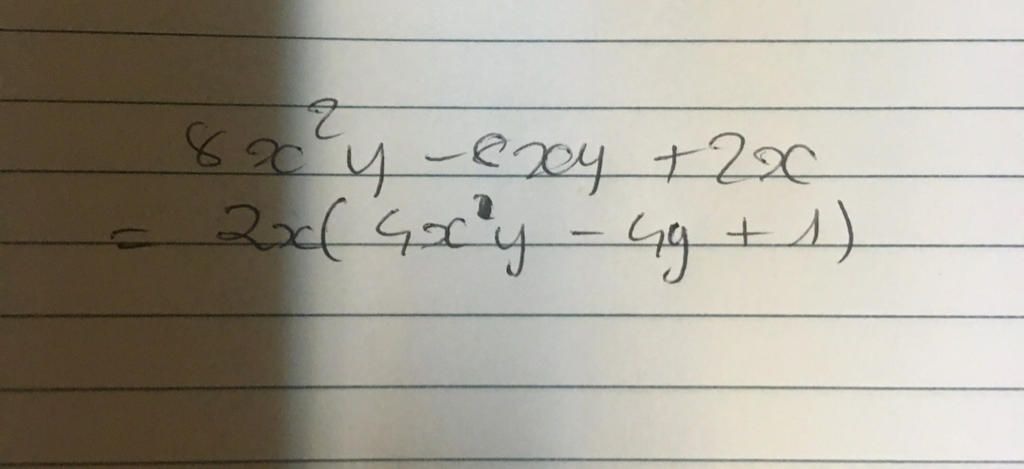 8x²y - 8xy + 2x
= 2x( 4x'y - 4y + 1)